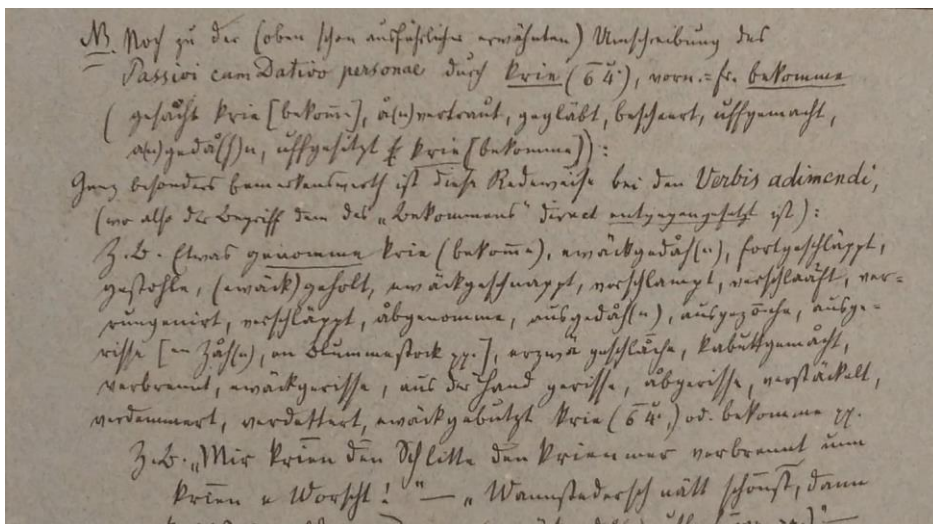 NB. Noch zu der (oben schon ausführlicher erwähnten) Umschreibung des
Passivi cum Dativo personae durch krie (64), vorn.=fr. bekomme
(gesächt krie [bekom̄e], å(n)vertraut, gegläbt, bescheert, uffgemacht,
a(n)gedå(h)n, uffgesetzt krie [bekomme]):
Ganz besonders bemerkenswerth ist diese Redeweise bei den Verbis adimendi,
(wo also der Begriff dem des „Bekommens" direct entgegengesetzt ist):
Z.B. Etwas genomme krie (bekom̄e), ewäckgedåh(n), fortgeschläppt,
gestohle, (ewäck)geholt, ewäckgeschnappt, verschlampt, verschlaäft, ver-
rungenirt, verschläppt, åbgenomme, ausgedåh(n), ausgezoche, ausge-
risse [en Zåh(n), en Blummestock pp.], erzwä geschlåche, kabuttgemåcht,
verbrennt, ewäckgerisse, aus der Hand gerisse, åbgerisse, verstäckelt,
verdemmert, verdettert, ewäckgebutzt krie (64,) od. bekomme pp.
Z.B. „Mir krien den Schlitte den krienmer verbrennt unn
krien e Worscht!" — „Wannstedersch nätt schönst, dann